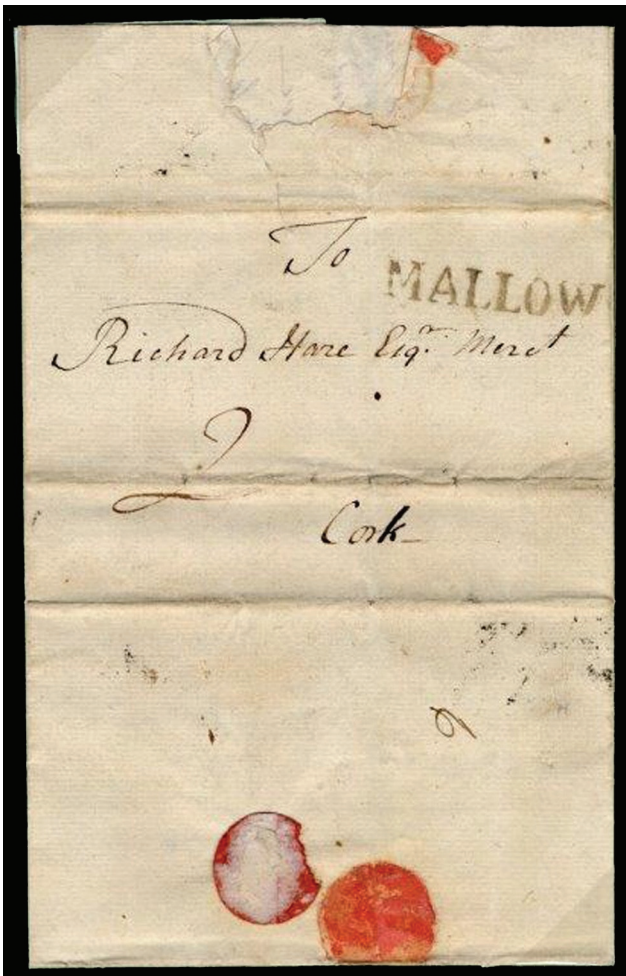 To
MALLOW
Richard Hare Esqr. Mercht
2
Cork